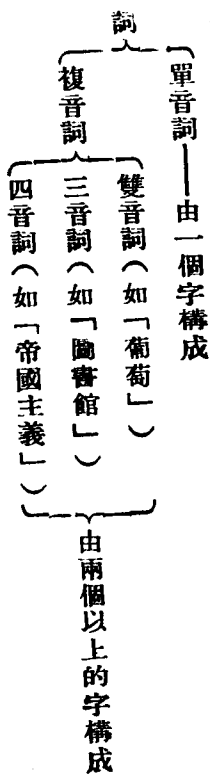 詞
單音詞——由一個字構成
複音詞
雙音詞（如「葡萄」）
三音詞（如「圖書館」）
四音詞（如「帝國主義」）
由兩個以上的字構成